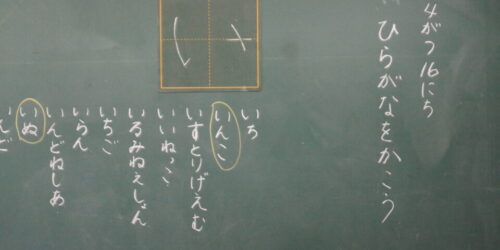 4がつ16にち
ひらがなをかこう
い
いち
いんこ
いすとりげえむ
いいねっこ
いるみねえしょん
いちご
いらん
いんどねしあ
いぬ